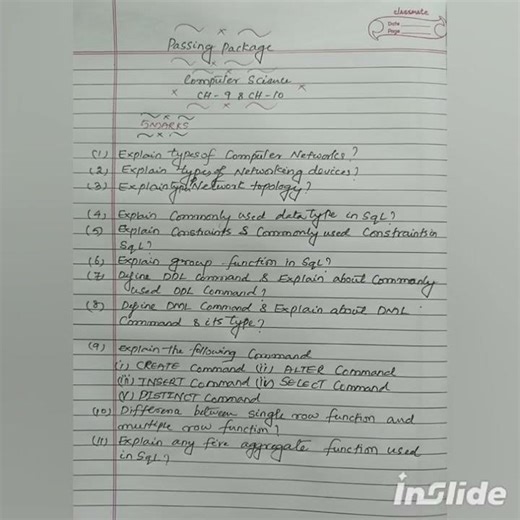 classmate
Date
Page
Passing Package
Computer Science
CH-9 & CH-10
5MARKS
(1) Explain types of Computer Networks?
(2) Explain types of Networking devices?
(3) Explain types Network topology?
(4) Explain Commonly used data type in SqL?
(5) Explain Constraints & Commonly used Constraints in
SqL?
(6) Explain group function in SqL?
(7) Define DDL command & Explain about Commonly
used DDL Command?
(8) Define DML Command & Explain about DML
Command & its type?
(9) explain the following Command
(i) CREATE Command (ii) ALTER Command
(iii) INSERT Command (iv) SELECT Command
(v) DISTINCT Command
(10) Difference between single row function and
multiple row function?
(11) Explain any five aggregate function used
in SqL?
inSlide